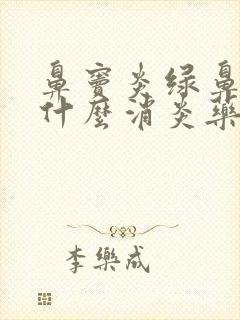 鼻窦炎绿鼻
什麽消炎藥
李樂成